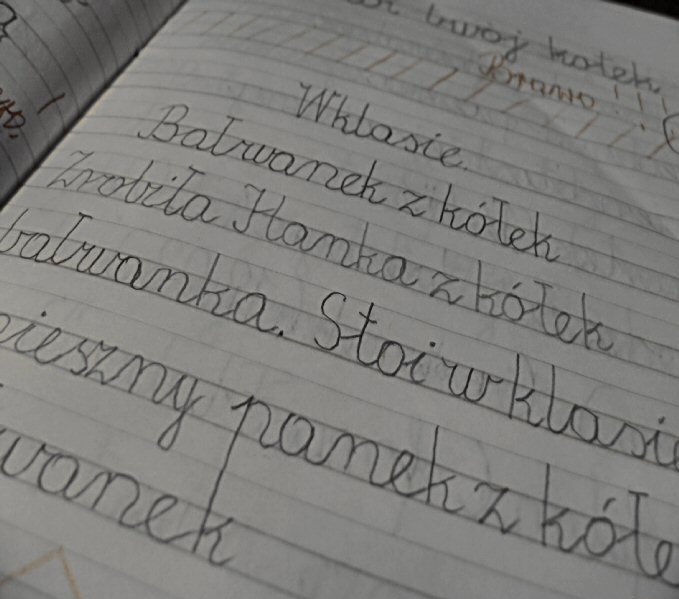 twój kotek
Brawo !!!
W klasie.
Bałwanek z kółek
Zrobiła Hanka z kółek
bałwanka. Stoi w klasie
pieszny panek z kółe
wanek